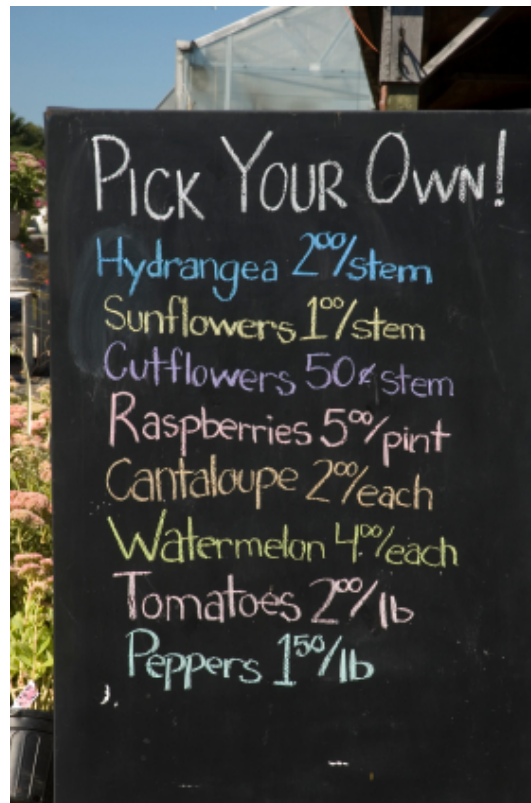 PICK YOUR OWN!
Hydrangea 2⁰⁰/stem
Sunflowers 1⁰⁰/stem
Cutflowers 50¢ stem
Raspberries 5⁰⁰/pint
Cantaloupe 2⁰⁰/each
Watermelon 4⁰⁰/each
Tomatoes 2⁰⁰/lb
Peppers 1⁵⁰/lb